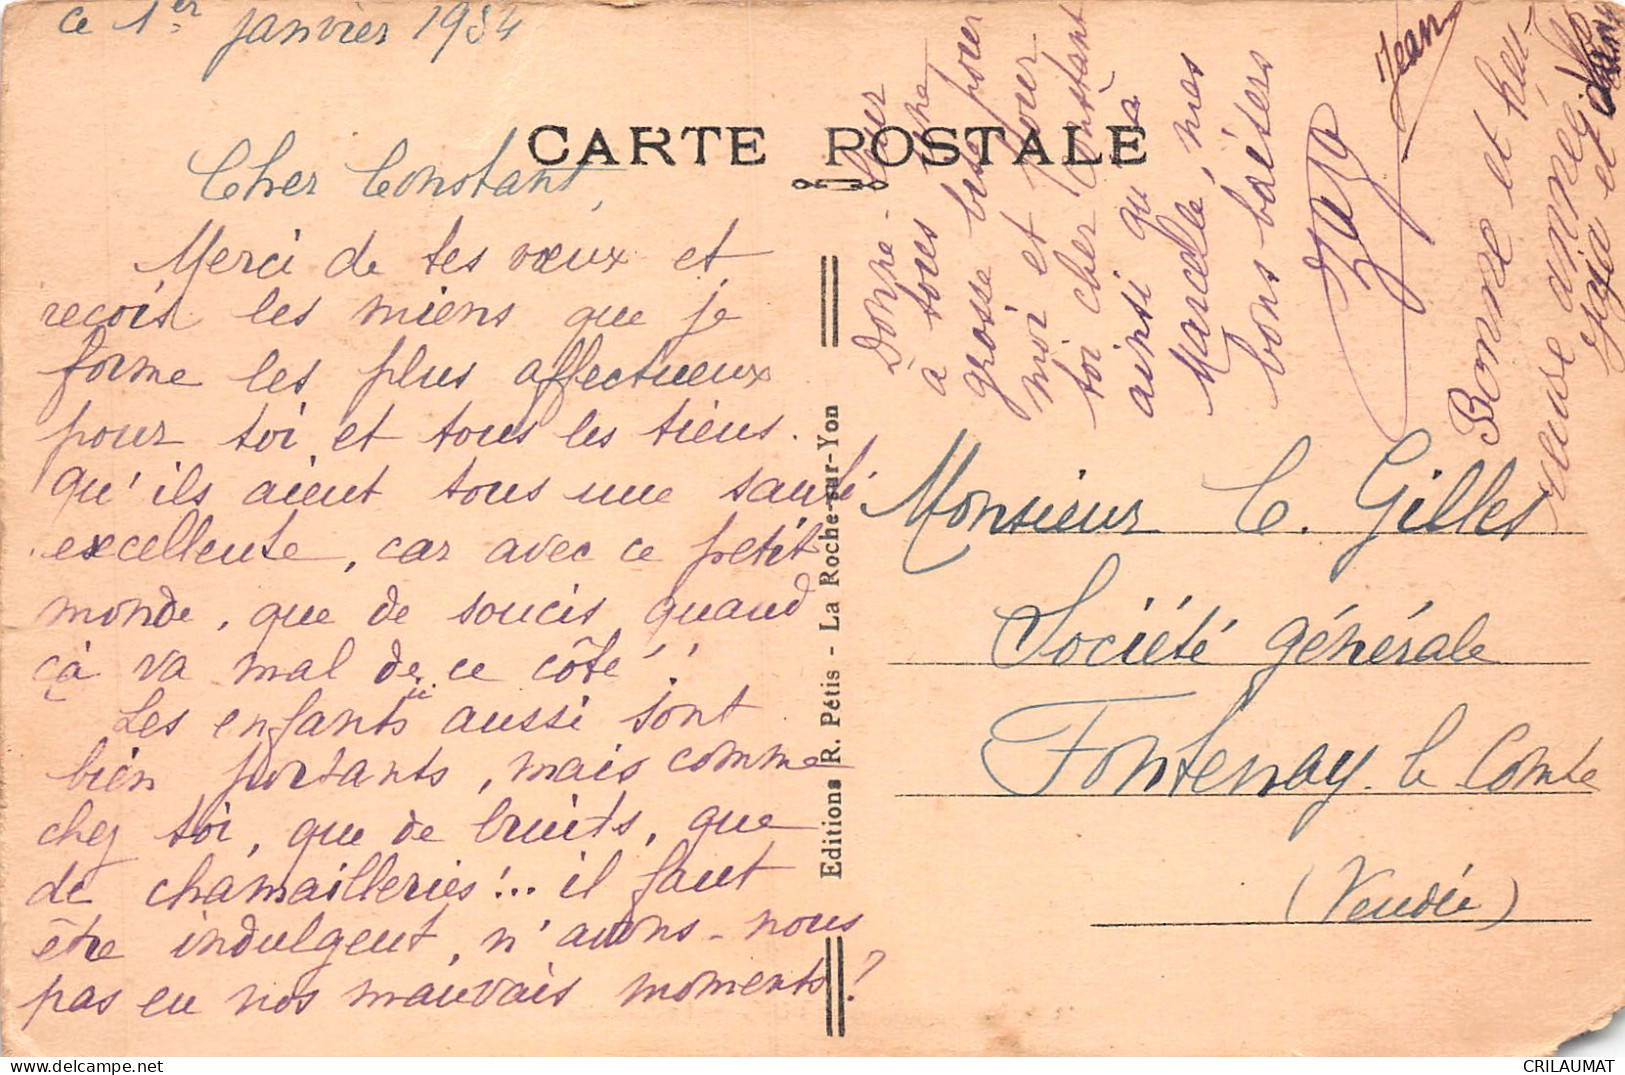 ce 1er janvier 1934
CARTE POSTALE
Cher Constant,
Merci de tes vœux et
reçois les miens que je
forme les plus affectueux
pour toi et tous les tiens.
qu'ils aient tous une santé
excellente, car avec ce petit
monde, que de soucis quand
çà va mal de ce côté !
Les enfants ici aussi sont
bien portants, mais comme
chez toi, que de bruits, que
de chamailleries !.. il faut
être indulgent, n'avons-nous
pas eu nos mauvais moments ?
Donne-leur
à tous une
grosse bise pour
moi et pour
toi cher Constant
ainsi qu'à
Marcelle, mes
bons baisers
Zaza
Jean
Bonne et heu-
reuse année
Editions R. Pétis - La Roche-sur-Yon
Monsieur C. Gilles
Société générale
Fontenay. le Comte
(Vendée)
CRILAUMAT